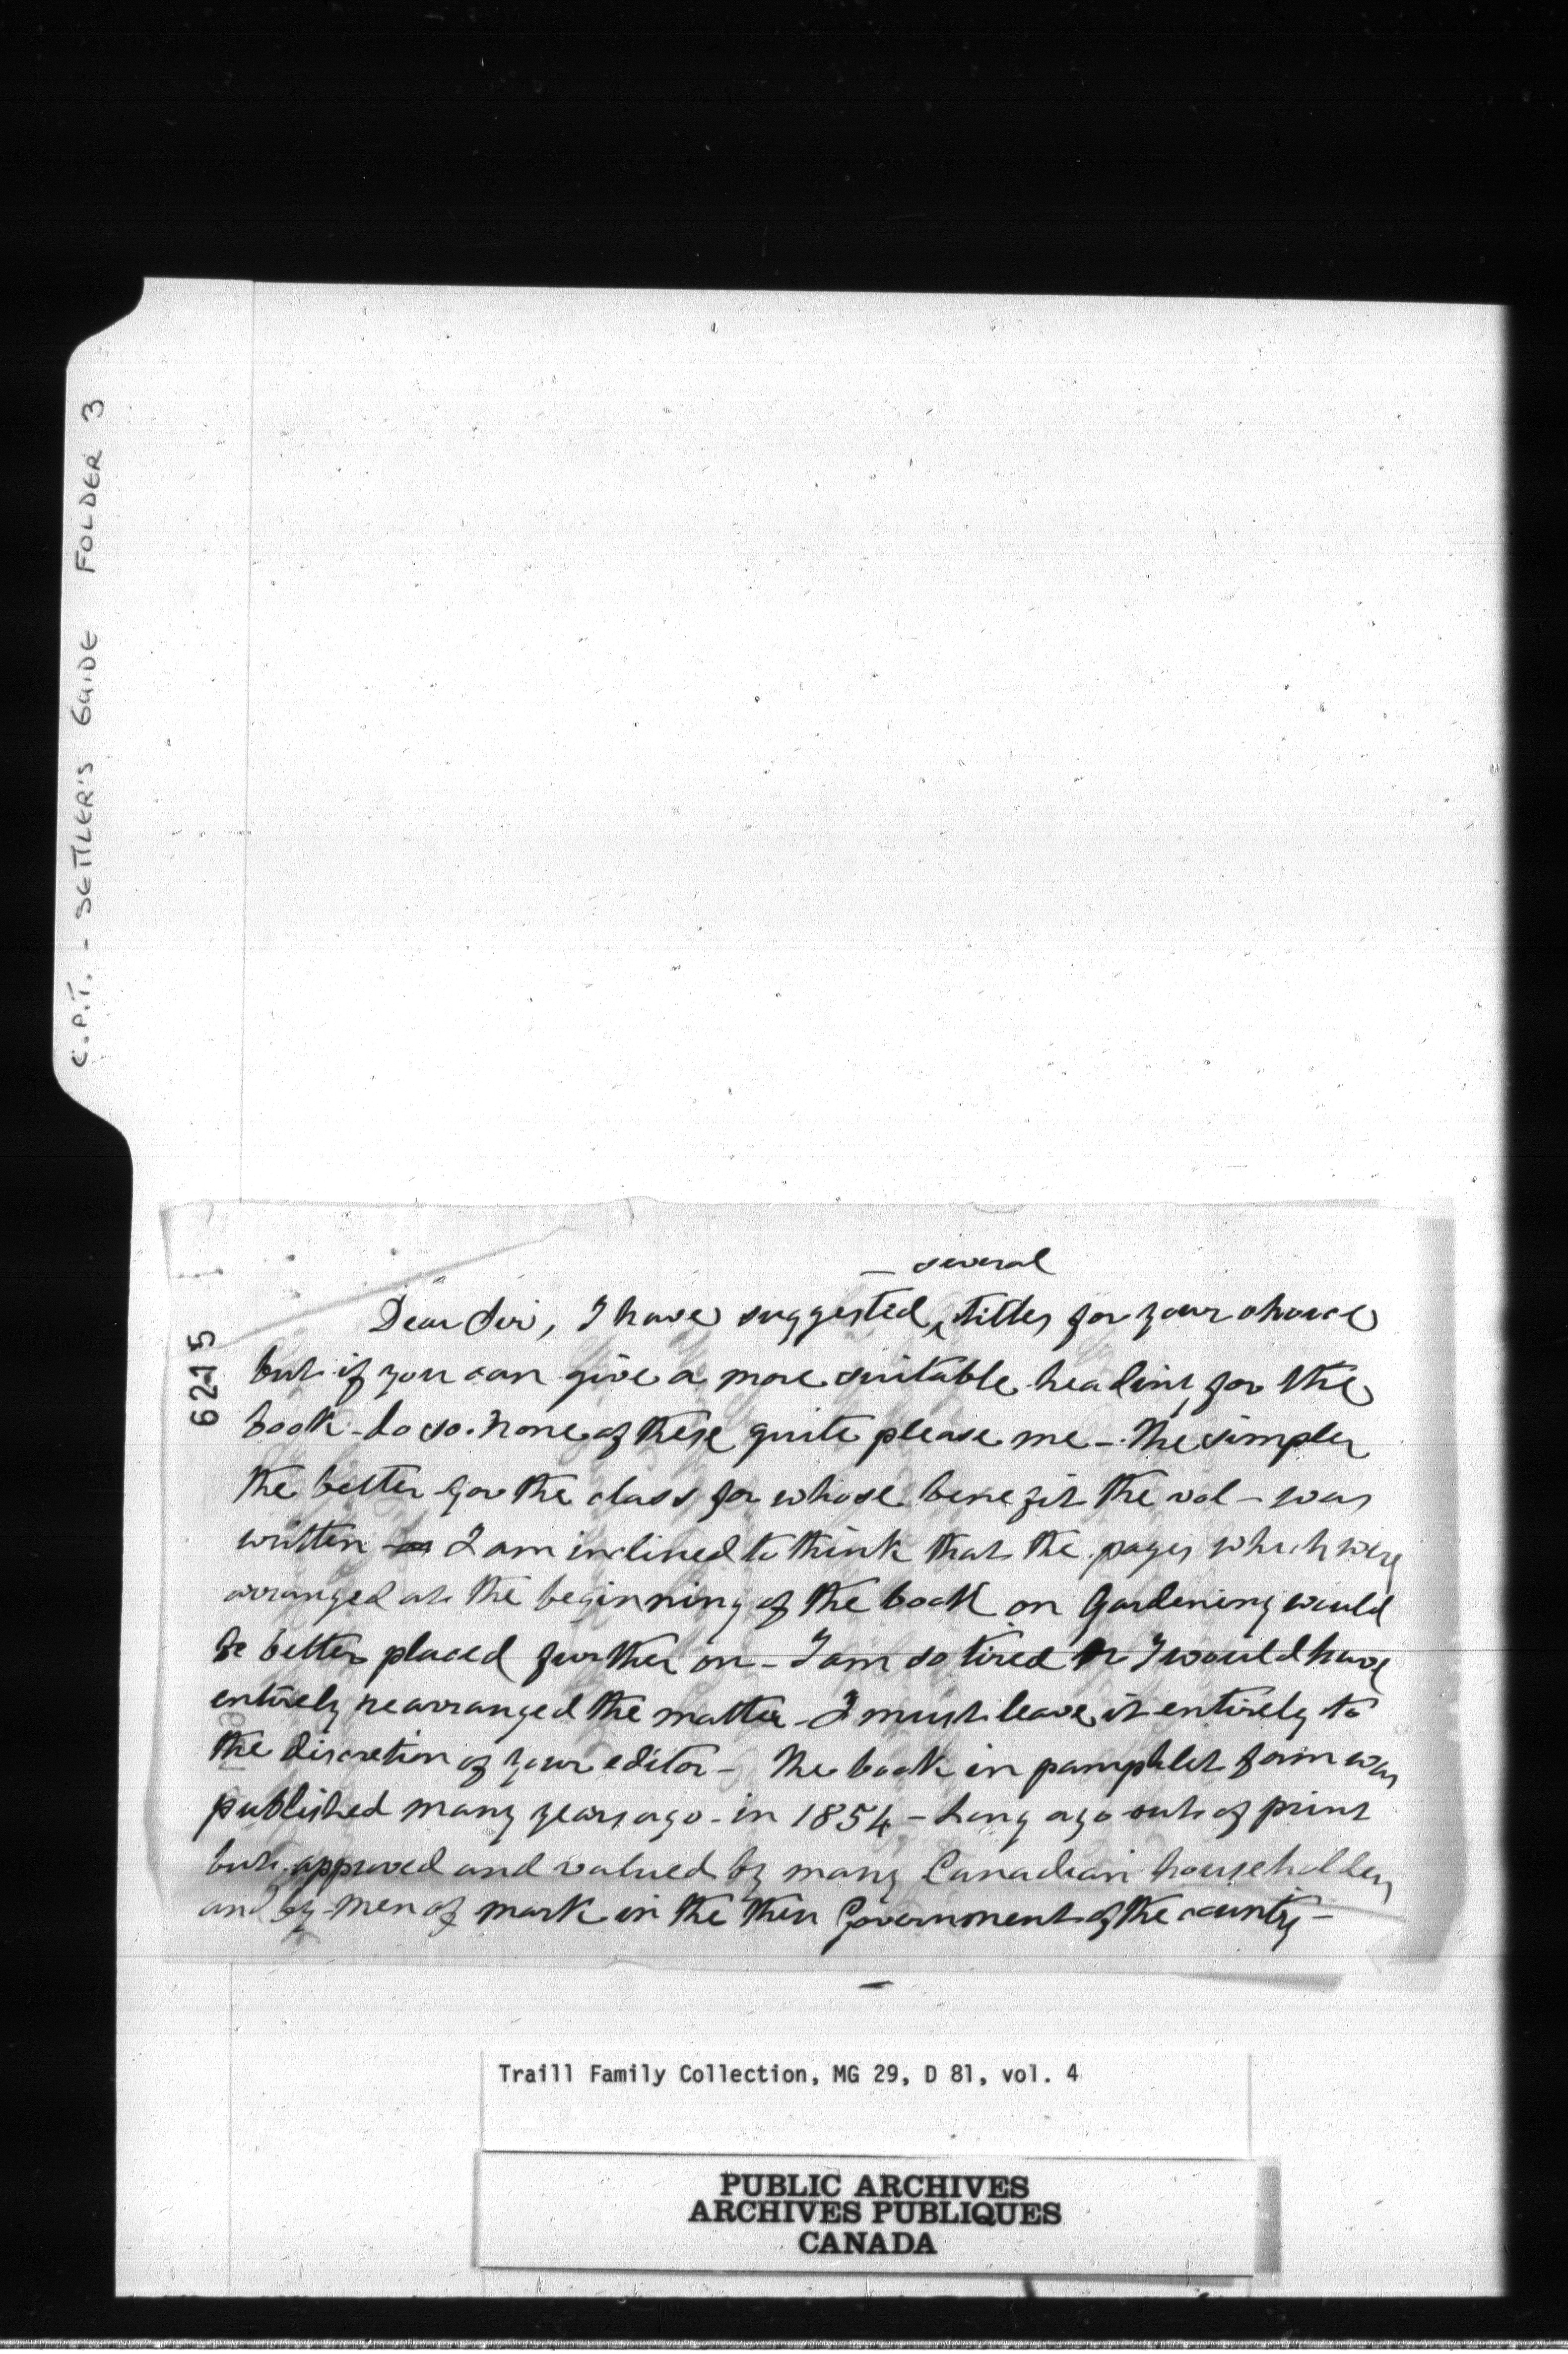 C.P.T. - SETTLER'S GUIDE FOLDER 3
6215
several
Dear Sir, I have suggested ‸ titles for your choice
but if you can give a more suitable heading for the
book - do so. None of these quite please me - The simpler
the better for the class for whose benefit the vol - was
written - I am inclined to think that the pages which were
arranged at the beginning of the book on Gardening would
be better placed further on - I am so tired or I would have
entirely rearranged the matter - I must leave it entirely to
the discretion of your editor - The book in pamphlet form was
published many years ago - in 1854 - Long ago out of print
but approved and valued by many Canadian householders
and by men of mark in the then Government of the country -
Traill Family Collection, MG 29, D 81, vol. 4
PUBLIC ARCHIVES
ARCHIVES PUBLIQUES
CANADA